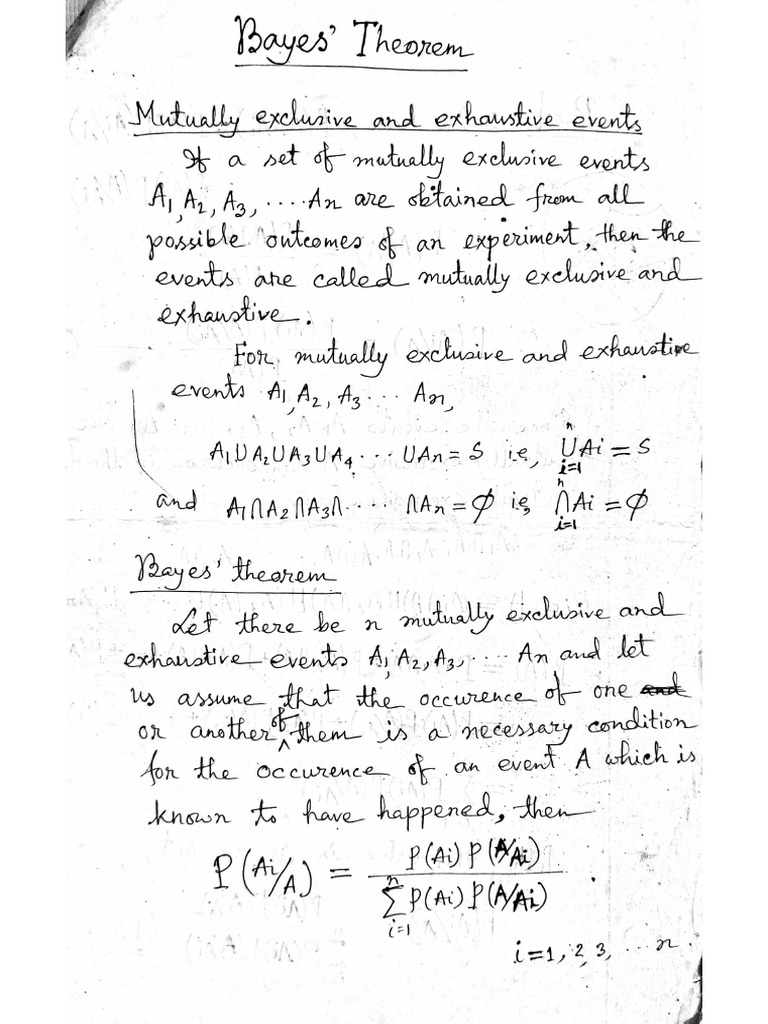 Bayes' Theorem
Mutually exclusive and exhaustive events
If a set of mutually exclusive events
A1, A2, A3, ....An are obtained from all
possible outcomes of an experiment, then the
events are called mutually exclusive and
exhaustive.
For mutually exclusive and exhaustive
events A1, A2, A3... An,
A1∪A2∪A3∪A4... ∪An = S i.e, ⋃ⁿᵢ₌₁ Ai = S
and A1∩A2∩A3∩.... ∩An = ∅ i.e, ⋂ⁿᵢ₌₁ Ai = ∅
Bayes' theorem
Let there be n mutually exclusive and
exhaustive events A1, A2, A3,.... An and let
us assume that the occurence of one and
or another of them is a necessary condition
for the occurence of an event A which is
known to have happened, then
P(Ai/A) = P(Ai) P(A/Ai) / ∑ⁿᵢ₌₁ P(Ai) P(A/Ai) .
i=1, 2, 3, ...n.